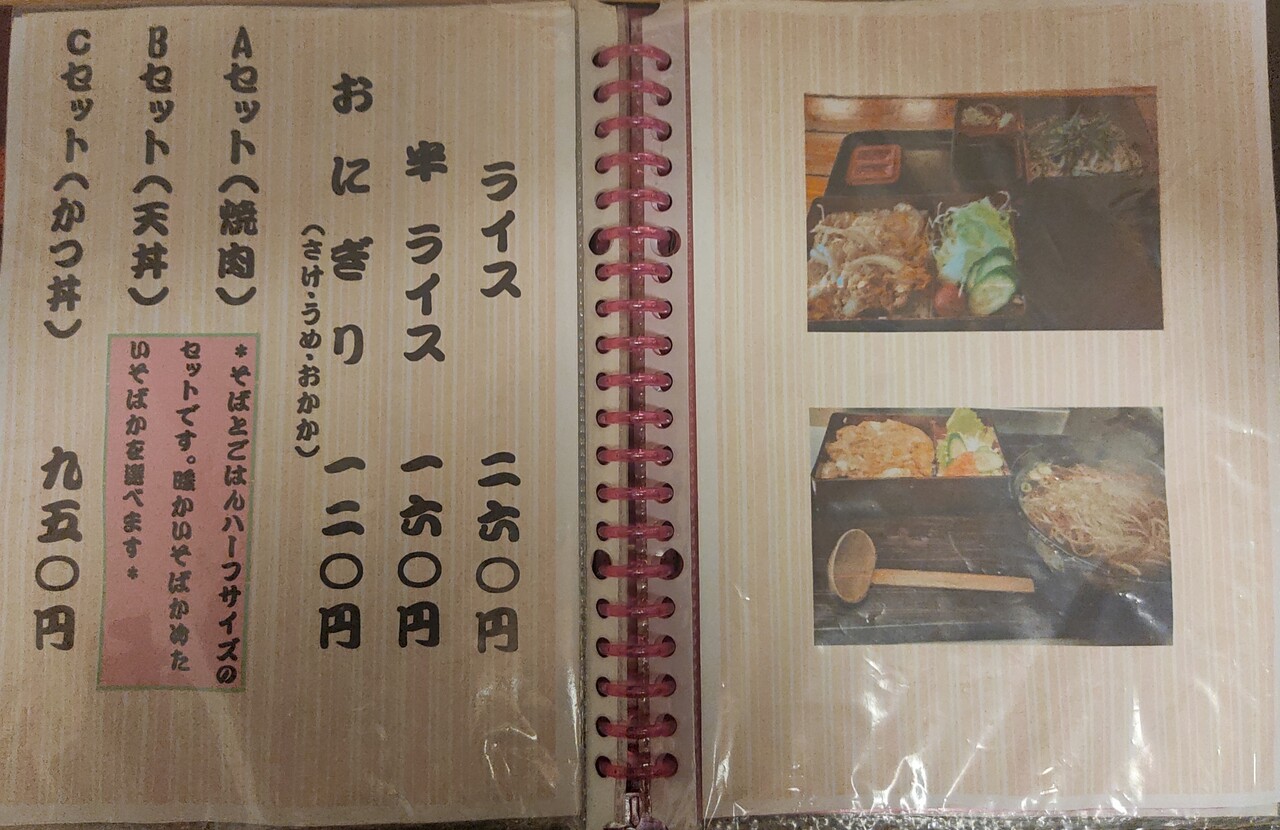 ライス 二六〇円
半ライス 一六〇円
おにぎり 一二〇円
(さけ・うめ・おかか)
Aセット(焼肉)
Bセット(天丼)
Cセット(かつ丼) 九五〇円
*そばとごはんハーフサイズの
セットです。暖かいそばかめた
いそばかを選べます*